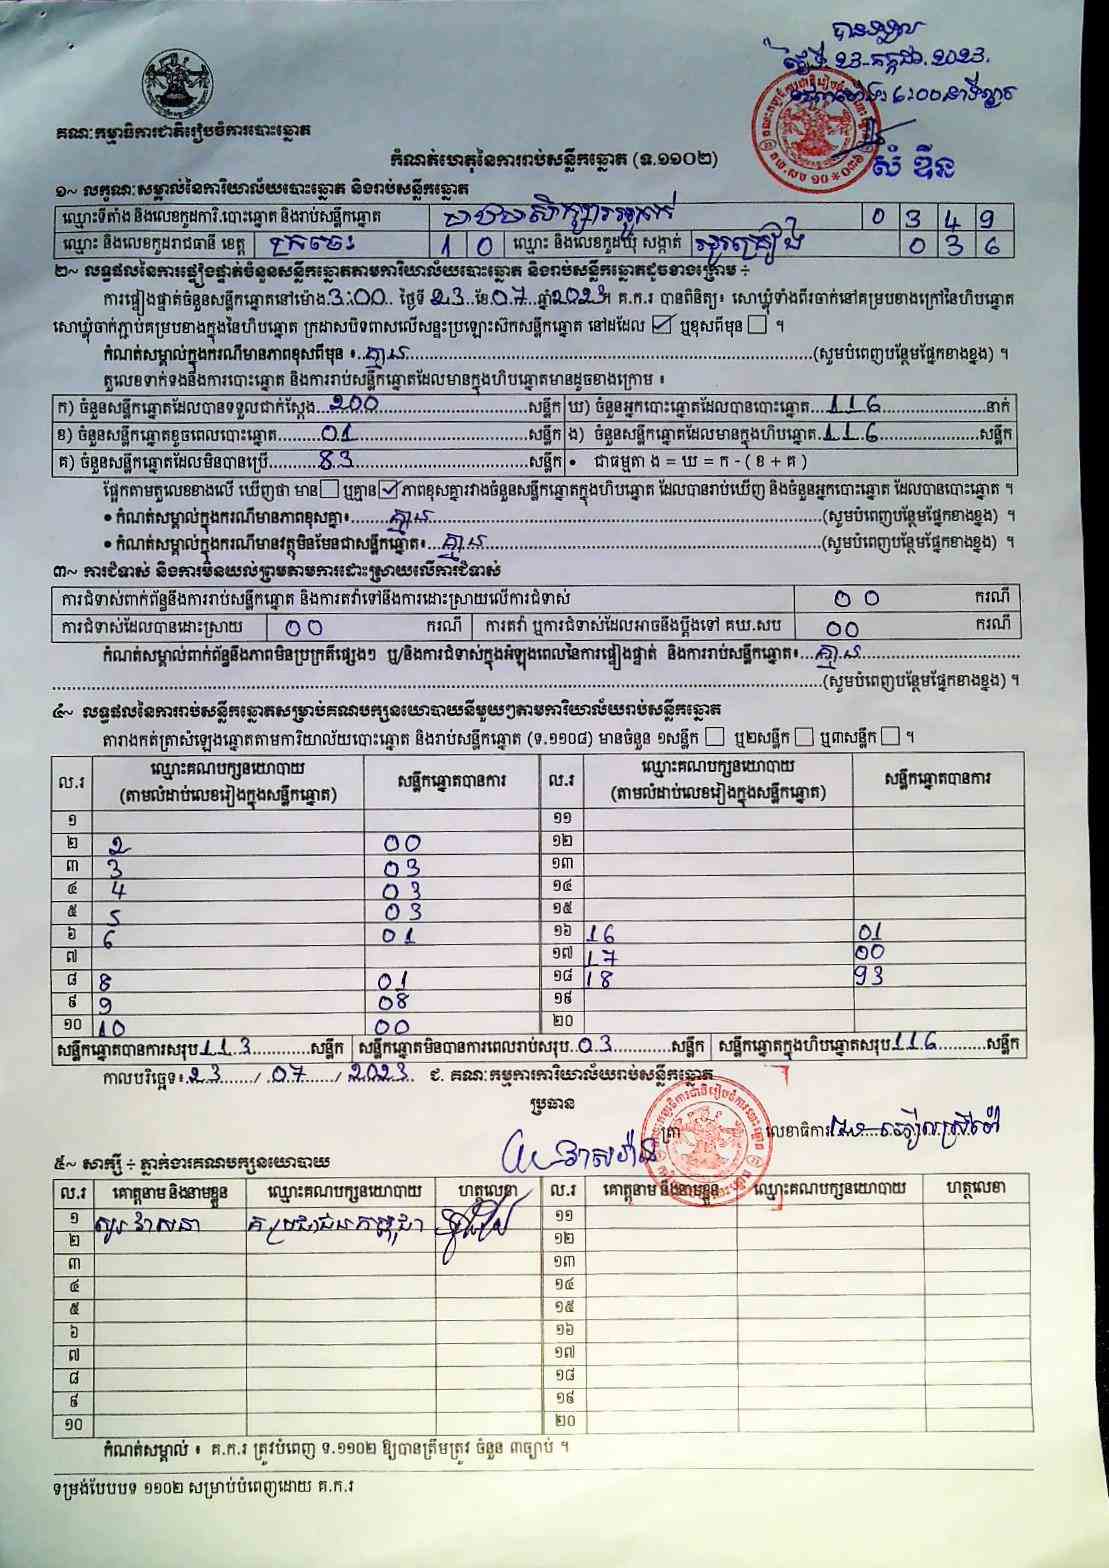 បានទទួល
ថ្ងៃទី 23 កក្កដា 2023
សំ ឌីន
គណៈកម្មាធិការជាតិរៀបចំការបោះឆ្នោត
កំណត់ហេតុនៃការរាប់សន្លឹកឆ្នោត (ទ.១១០២)
១~ លក្ខណៈសម្គាល់នៃការិយាល័យបោះឆ្នោត និងរាប់សន្លឹកឆ្នោត
ឈ្មោះទីតាំង និងលេខកូដការិ.បោះឆ្នោត និងរាប់សន្លឹកឆ្នោត 0 3 4 9
ឈ្មោះ និងលេខកូដរាជធានី ខេត្ត ក្រចេះ 1 0 ឈ្មោះ និងលេខកូដឃុំ សង្កាត់ 0 3 6
២~ លទ្ធផលនៃការផ្ទៀងផ្ទាត់ចំនួនសន្លឹកឆ្នោតតាមការិយាល័យបោះឆ្នោត និងរាប់សន្លឹកឆ្នោតដូចខាងក្រោម ÷
ការផ្ទៀងផ្ទាត់ចំនួនសន្លឹកឆ្នោតនៅម៉ោង 3:00 ថ្ងៃទី 23 ខែ 07 ឆ្នាំ 2023 ។ គ.ក.រ បានពិនិត្យ៖ សោឃ្លុំទាំងពីរចាក់នៅគម្របខាងក្រៅនៃហិបឆ្នោត
សោឃ្លុំចាក់ភ្ជាប់គម្របខាងក្នុងនៃហិបឆ្នោត ក្រដាសបិទពាសលើសន្ទះប្រឡោះស៊កសន្លឹកឆ្នោត នៅដដែល ☑ ឬខុសពីមុន ☐ ។
កំណត់សម្គាល់ក្នុងករណីមានភាពខុសពីមុន ៖ គ្មាន (សូមបំពេញបន្ថែមផ្នែកខាងខ្នង) ។
តួលេខទាក់ទងនឹងការបោះឆ្នោត និងការរាប់សន្លឹកឆ្នោតដែលមានក្នុងហិបឆ្នោតមានដូចខាងក្រោម ៖
ក) ចំនួនសន្លឹកឆ្នោតដែលបានទទួលជាក់ស្តែង 200 សន្លឹក ឃ) ចំនួនអ្នកបោះឆ្នោតដែលបានបោះឆ្នោត 116 នាក់
ខ) ចំនួនសន្លឹកឆ្នោតខូចពេលបោះឆ្នោត 01 សន្លឹក ង) ចំនួនសន្លឹកឆ្នោតដែលមានក្នុងហិបឆ្នោត 116 សន្លឹក
គ) ចំនួនសន្លឹកឆ្នោតដែលមិនបានប្រើ 83 សន្លឹក • ជាធម្មតា ង = ឃ = ក - ( ខ + គ )
ផ្អែកតាមតួលេខខាងលើ ឃើញថា មាន ☐ ឬគ្មាន ☑ ភាពខុសគ្នារវាងចំនួនសន្លឹកឆ្នោតក្នុងហិបឆ្នោត ដែលបានរាប់ឃើញ និងចំនួនអ្នកបោះឆ្នោត ដែលបានបោះឆ្នោត ។
• កំណត់សម្គាល់ក្នុងករណីមានភាពខុសគ្នា៖ គ្មាន (សូមបំពេញបន្ថែមផ្នែកខាងខ្នង) ។
• កំណត់សម្គាល់ក្នុងករណីមានវត្ថុមិនមែនជាសន្លឹកឆ្នោត៖ គ្មាន (សូមបំពេញបន្ថែមផ្នែកខាងខ្នង) ។
៣~ ការជំទាស់ និងការមិនយល់ព្រមតាមការដោះស្រាយលើការជំទាស់
ការជំទាស់ពាក់ព័ន្ធនឹងការរាប់សន្លឹកឆ្នោត និងការតវ៉ាទៅនឹងការដោះស្រាយលើការជំទាស់ 00 ករណី
ការជំទាស់ដែលបានដោះស្រាយ 00 ករណី ការតវ៉ា ឬការជំទាស់ដែលអាចនឹងប្តឹងទៅ គឃ.សប 00 ករណី
កំណត់សម្គាល់ពាក់ព័ន្ធនឹងភាពមិនប្រក្រតីផ្សេងៗ ឬ/និងការជំទាស់ក្នុងអំឡុងពេលនៃការផ្ទៀងផ្ទាត់ និងការរាប់សន្លឹកឆ្នោត៖ គ្មាន
(សូមបំពេញបន្ថែមផ្នែកខាងខ្នង) ។
៤~ លទ្ធផលនៃការរាប់សន្លឹកឆ្នោតសម្រាប់គណបក្សនយោបាយនីមួយៗតាមការិយាល័យរាប់សន្លឹកឆ្នោត
តារាងកត់ត្រាសំឡេងឆ្នោតតាមការិយាល័យបោះឆ្នោត និងរាប់សន្លឹកឆ្នោត (ទ.១១០៨) មានចំនួន ១សន្លឹក ☐ ឬ២សន្លឹក ☐ ឬ៣សន្លឹក ☐ ។
ល.រ ឈ្មោះគណបក្សនយោបាយ (តាមលំដាប់លេខរៀងក្នុងសន្លឹកឆ្នោត) សន្លឹកឆ្នោតបានការ ល.រ ឈ្មោះគណបក្សនយោបាយ (តាមលំដាប់លេខរៀងក្នុងសន្លឹកឆ្នោត) សន្លឹកឆ្នោតបានការ
១ ១១
២ 2 00 ១២
៣ 3 03 ១៣
៤ 4 03 ១៤
៥ 5 03 ១៥
៦ 6 01 ១៦ 16 01
៧ ១៧ 17 00
៨ 8 01 ១៨ 18 93
៩ 9 08 ១៩
១០ 10 00 ២០
សន្លឹកឆ្នោតបានការសរុប 113 សន្លឹក សន្លឹកឆ្នោតមិនបានការពេលរាប់សរុប 03 សន្លឹក សន្លឹកឆ្នោតក្នុងហិបឆ្នោតសរុប 116 សន្លឹក
កាលបរិច្ឆេទ៖ 23 / 07 / 2023 ជ. គណៈកម្មការការិយាល័យរាប់សន្លឹកឆ្នោត
ប្រធាន
ត្រា លេខាធិការ
៥~ សាក្សី ÷ ភ្នាក់ងារគណបក្សនយោបាយ
ល.រ គោត្តនាម និងនាមខ្លួន ឈ្មោះគណបក្សនយោបាយ ហត្ថលេខា ល.រ គោត្តនាម និងនាមខ្លួន ឈ្មោះគណបក្សនយោបាយ ហត្ថលេខា
១ គ ប្រជាជនកម្ពុជា ១១
២ ១២
៣ ១៣
៤ ១៤
៥ ១៥
៦ ១៦
៧ ១៧
៨ ១៨
៩ ១៩
១០ ២០
កំណត់សម្គាល់ ៖ គ.ក.រ ត្រូវបំពេញ ទ.១១០២ ឱ្យបានត្រឹមត្រូវ ចំនួន ៣ច្បាប់ ។
ទម្រង់បែបបទ ១១០២ សម្រាប់បំពេញដោយ គ.ក.រ